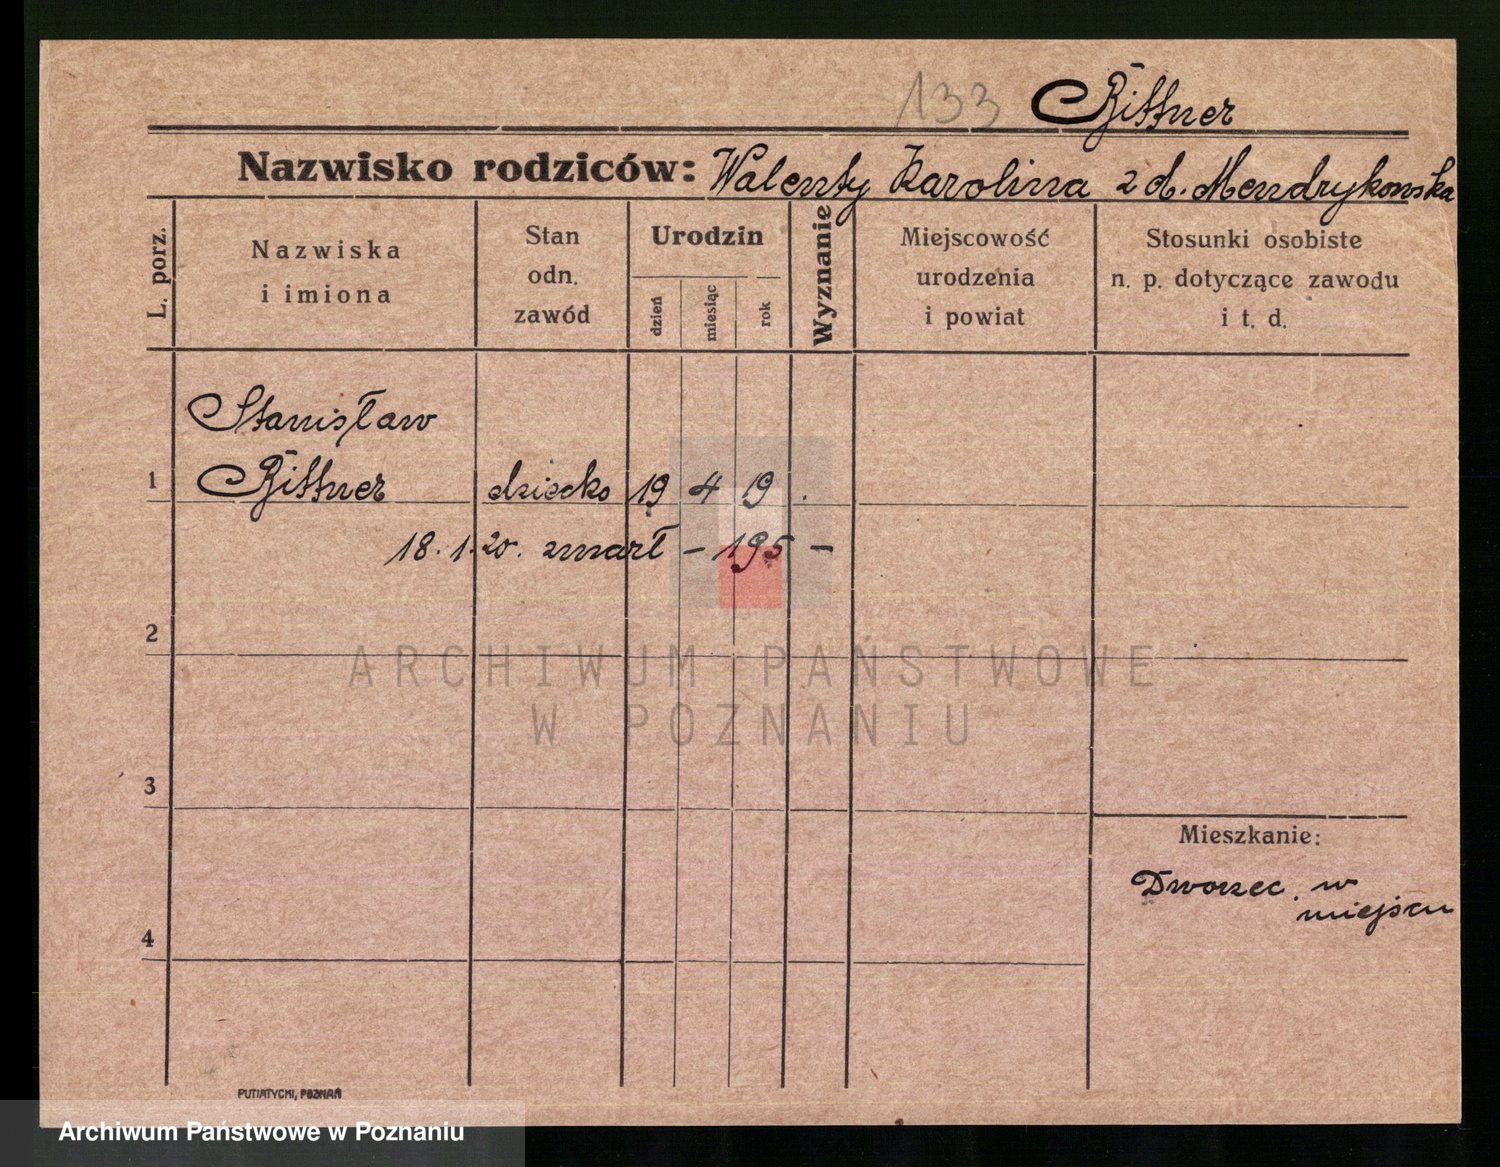 133 Bittner
Nazwisko rodziców: Walenty Karolina z d. Mendrykowska
L. porz.
Nazwiska
i imiona
Stan
odn.
zawód
Urodzin
dzień
miesiąc
rok
Wyznanie
Miejscowość
urodzenia
i powiat
Stosunki osobiste
n. p. dotyczące zawodu
i t. d.
Stanisław
1 Bittner dziecko 19 4 19 .
18. 1. 20. zmarł – 195 –
2
3
4
Mieszkanie:
Dworzec w
miejscu
ARCHIWUM PAŃSTWOWE
W POZNANIU
PUTIATYCKI, POZNAŃ
Archiwum Państwowe w Poznaniu